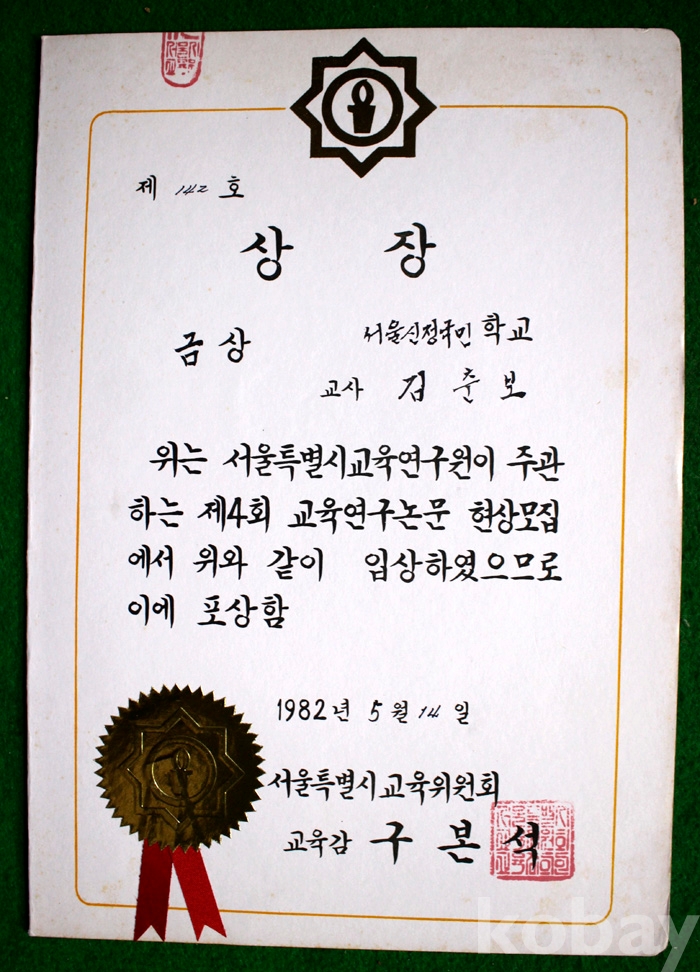 제 142 호
상 장
금상
서울신정국민 학교
교사 김춘보
위는 서울특별시교육연구원이 주관
하는 제4회 교육연구논문 현상모집
에서 위와 같이 입상하였으므로
이에 포상함
1982년 5월 14일
서울특별시교육위원회
교육감 구본석
kobay